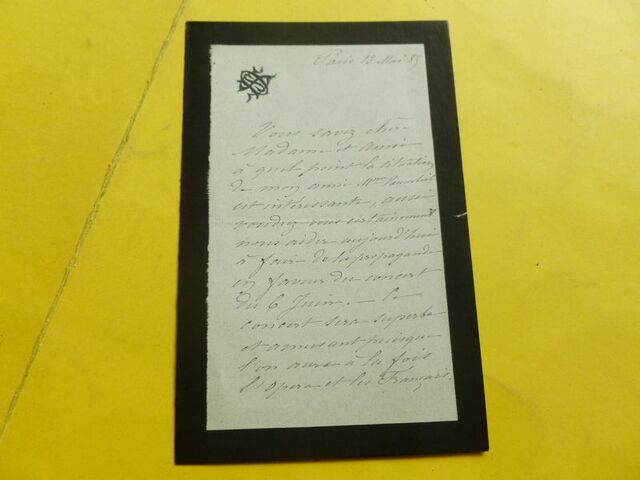 Paris 13 Mai 85
Vous savez chère
Madame et amie
à quel point la situation
de mon amie Mme
est intéressante, aussi
voudrez vous certainement
nous aider aujourd'hui
à fair de la propagande
en faveur du concert
du 6 Juin. — Le
concert sera superbe
et amusant puisque
l'on aura à la fois
l'opera et les Français.